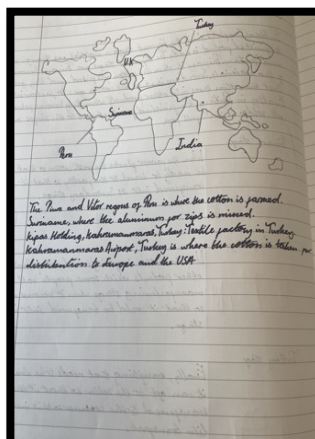 Turkey
UK
Suriname
Peru
India
The Piura and Vitor regions of Peru is where the cotton is farmed.
Suriname, where the aluminum for zips is mined.
Kipas Holding, Kahramanmaras, Turkey: Textile factory in Turkey
Kahramanmaras Airport, Turkey is where the cotton is taken for
distribution to Europe and the USA